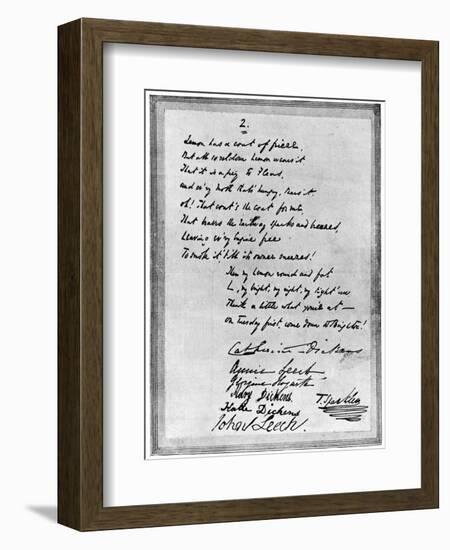 2.
Lemon has a coat of frieze,
But all so seldom Lemon wears it
That it is a prey to Fleas,
and ev'ry moth that's hungry, tears it
oh! that coat's the coat for me,
That braves the railway sparks and breezes,
Leaving ev'ry Engine free
To smoke it, till its owner sneezes!
Then my Lemon round and fat
L., my bright, my right, my tight 'un
Think a little what you're at —
on Tuesday first, come down to Brighton!
Catherine Dickens
Annie Leech
Georgina Hogarth
Mary Dickens
T. Sparkler
Katie Dickens
John Leech.